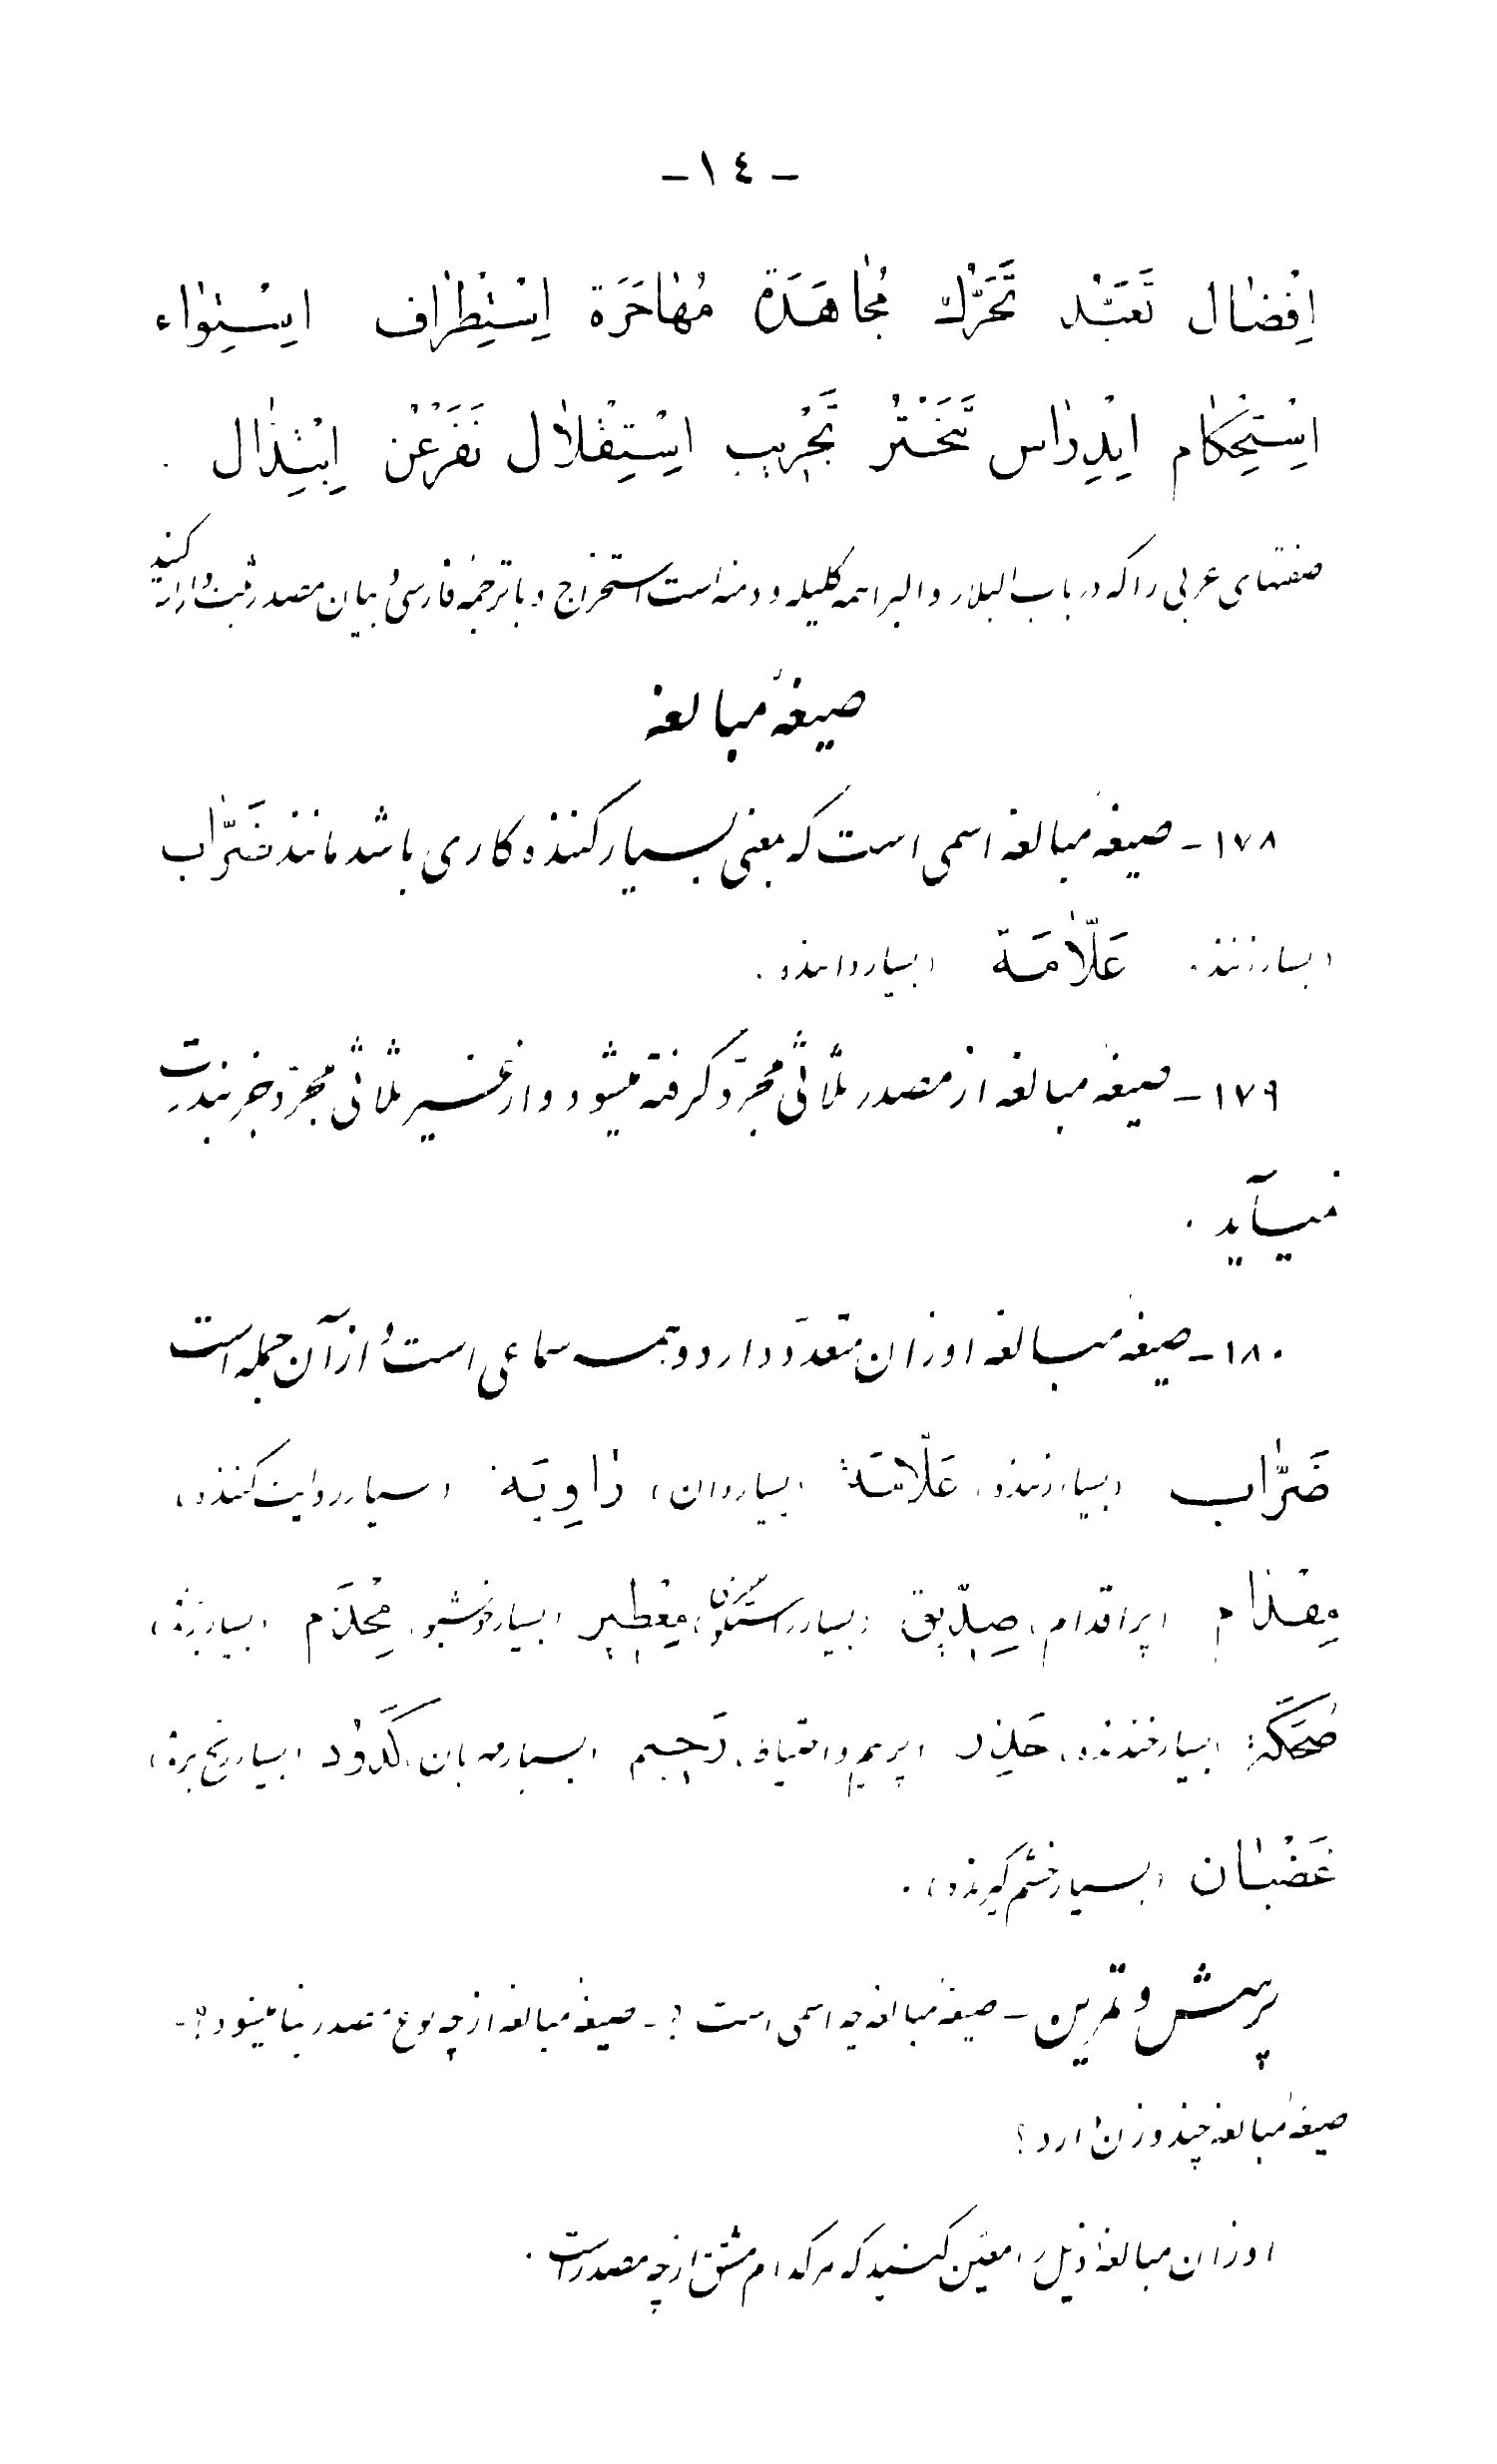 -١٤-
اِفْضٰال تَعَبُّد تَحَرُّك مُجٰاهَدَة مُهٰاجَرَة اِسْتِطْرٰاف اِسْتِوٰاء
اِسْتِحْكٰام اِنْدِرٰاس تَبَخْتُر تَجْرِيب اِسْتِقْلاٰل تَفَرْعُن اِبْتِذٰال .
صفتهای عربی را که در باب البلار و البراهمه کلیله و دمنه است استخراج و با ترجمهٔ فارسی و بیان مصدر ثبت و ارائه کنید
صیغهٔ مبالغه
١٧٨ـ صیغهٔ مبالغه اسمی است که بمعنی بسیار کننده کاری باشد مانند ضَرّٰاب
(بسیار زننده) عَلّاٰمَة (بسیار داننده).
١٧٩ـ صیغهٔ مبالغه از مصدر ثلاثی مجرّد گرفته میشود و از غیر ثلاثی مجرّد جز بندرت
نمیآید .
١٨٠ـ صیغهٔ مبالغه اوزان متعدّد دارد و همه سماعی است و از آن جمله است
ضَرّٰاب (بسیار زننده) عَلّاٰمَة (بسیار دان) رٰاوِیَة (بسیار روایت کننده)
مِقْدٰام (پر اقدام) صِدّیق (بسیار راستگو) مِعْطیر (بسیار خوشبو) مِحْذَم (بسیار برنده)
ضُحَكَة (بسیار خنده) حَذِر (پر بیم و احتیاط) رَحیم (بسیار مهربان) كَدُود (بسیار رنج برنده)
غَضْبٰان (بسیار خشم گیرنده) .
پرسش و تمرین ـ صیغهٔ مبالغه چه اسمی است ؟ ـ صیغهٔ مبالغه از چه نوع مصدر بنا میشود ؟ ـ
صیغهٔ مبالغه چند وزن دارد ؟
اوزان مبالغهٔ ذیل را معیّن کنید که هر کدام مشتق از چه مصدر است .